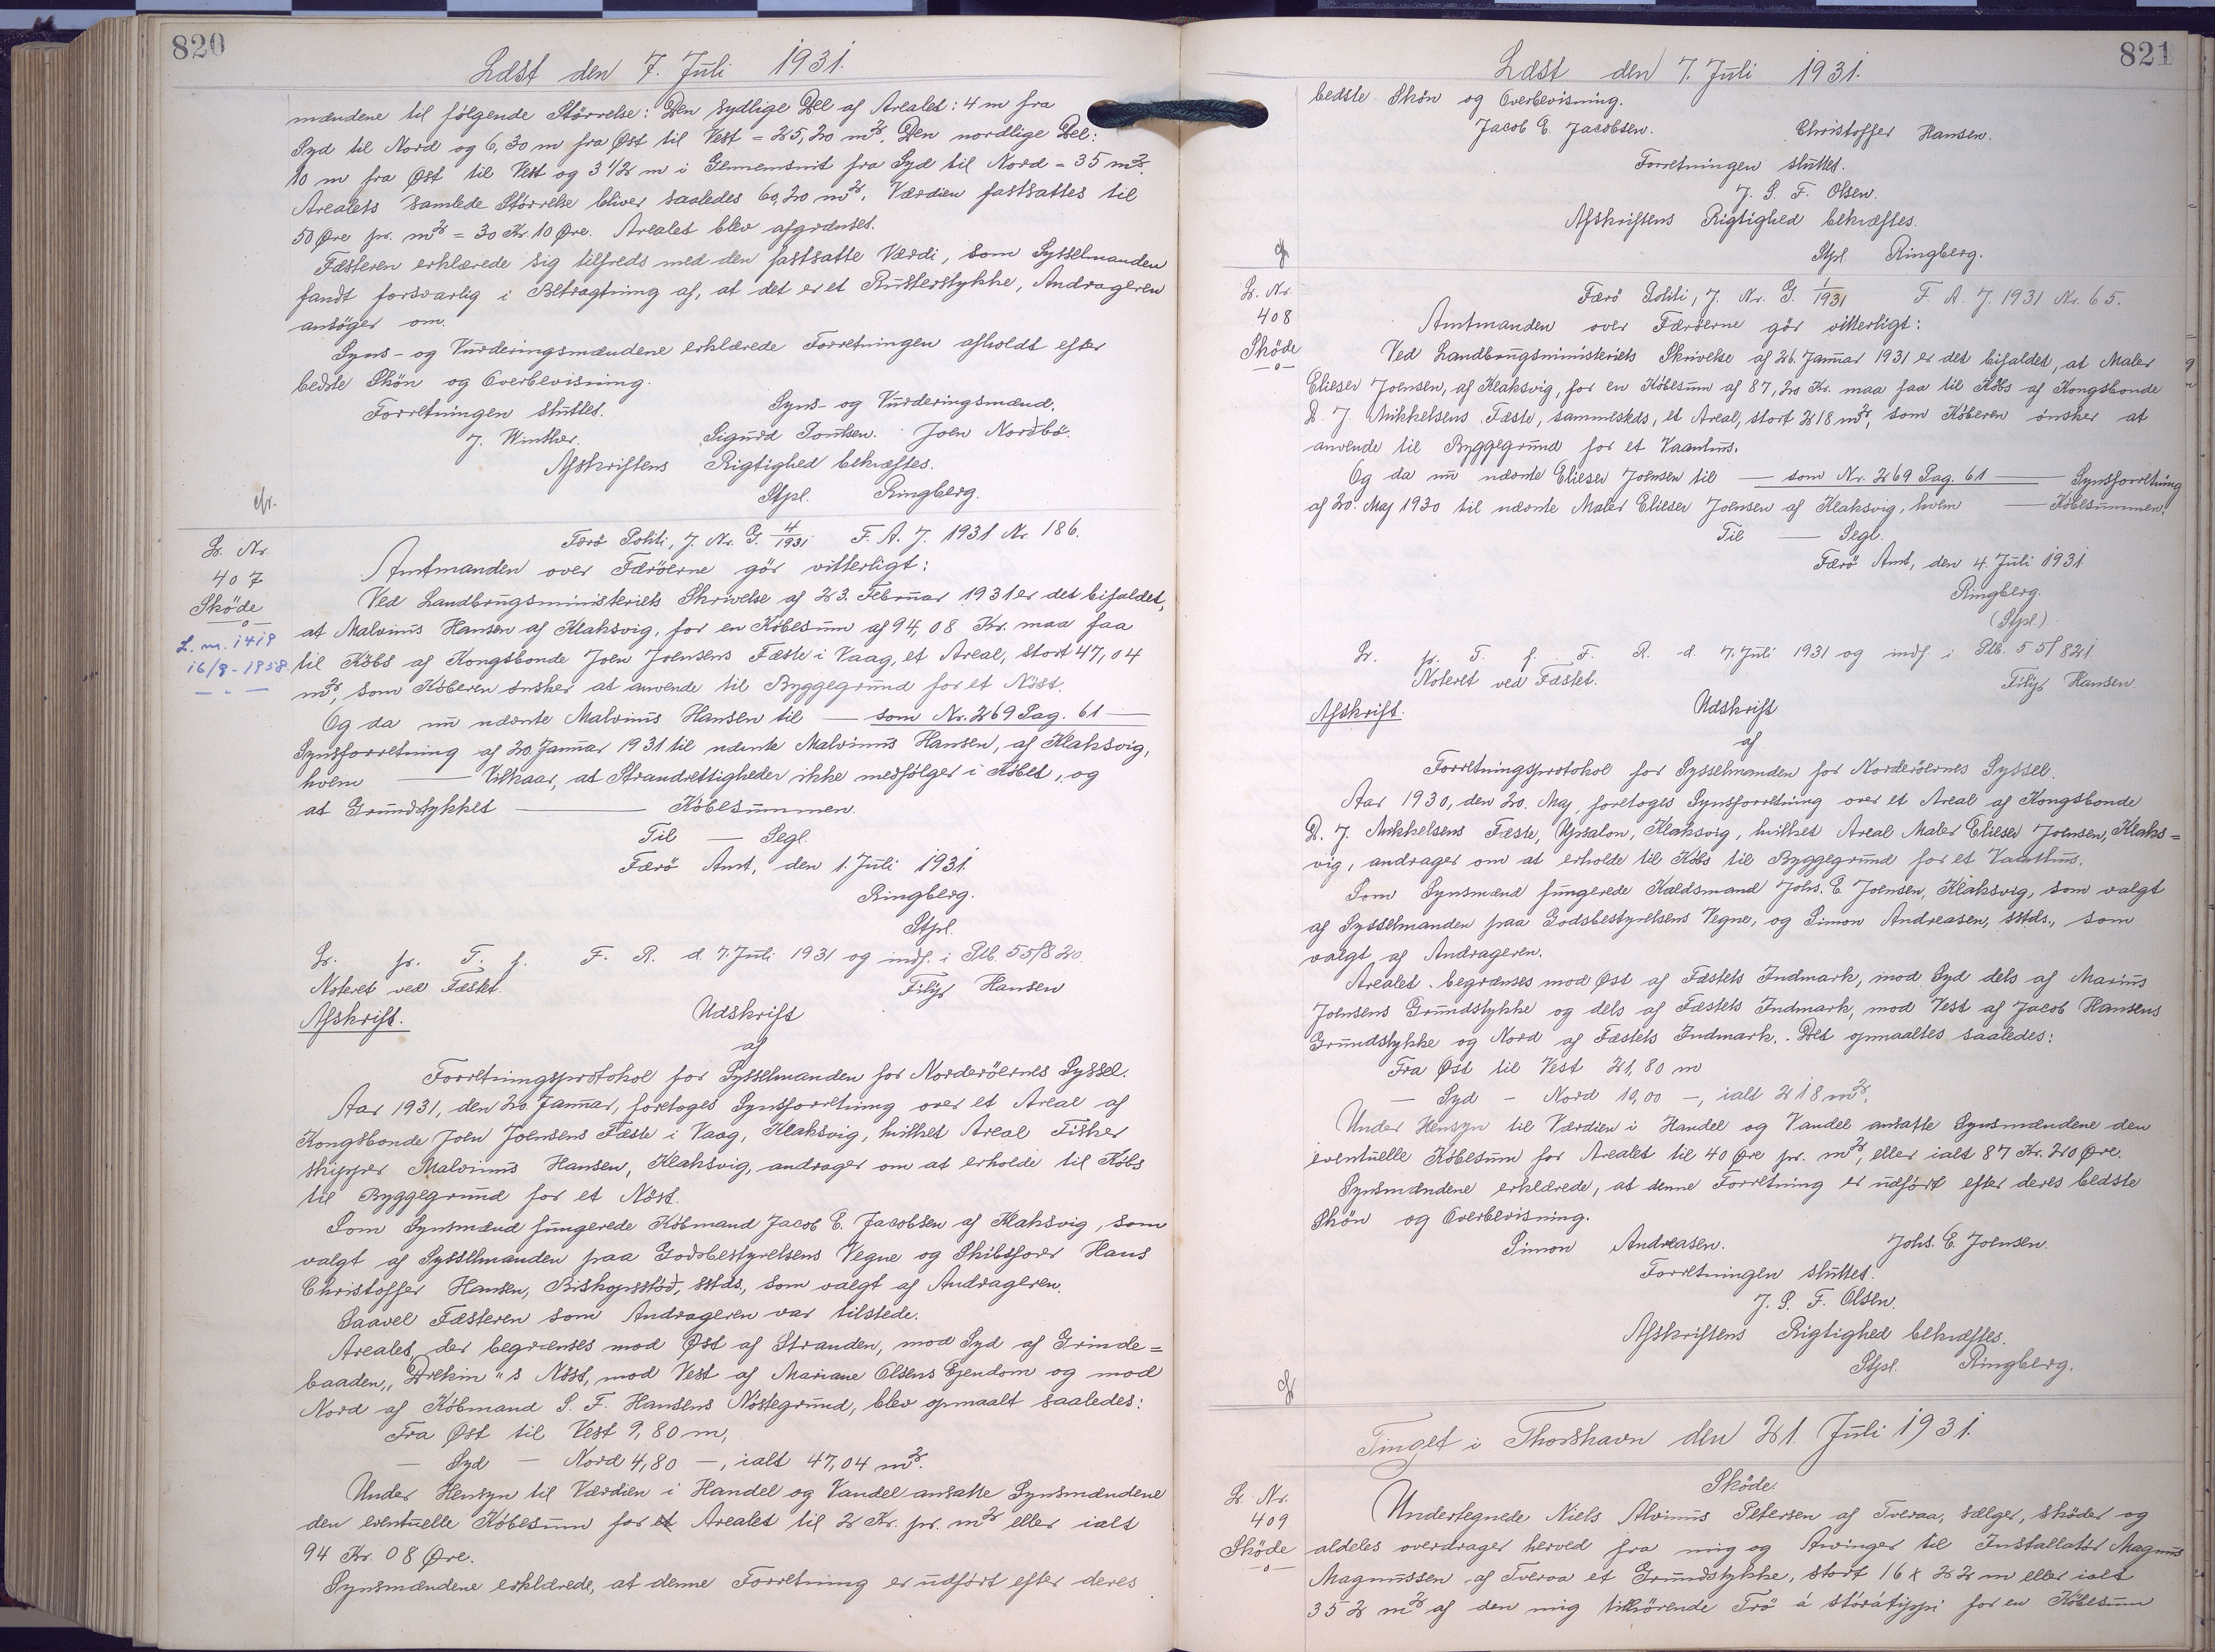 820
Læst den 7. Juli 1931.
mændene til følgende Størrelse: Den sydlige Del af Arealet: 4 m fra
Syd til Nord og 6,30 m fra Øst til Vest = 25,20 m². Den nordlige Del:
10 m fra Øst til Vest og 3 1/2 m i Gennemsnit fra Syd til Nord = 35 m².
Arealets samlede Størrelse bliver saaledes 60,20 m². Værdien fastsattes til
50 Øre pr. m² = 30 Kr. 10 Øre. Arealet blev afgrænset.
Fæsteren erklærede sig tilfreds med den fastsatte Værdi, som Sysselmanden
fandt forsvarlig i Betragtning af, at det er et Rusterstykke, Andrageren
ansøger om.
Syns- og Vurderingsmændene erklærede Forretningen afholdt efter
bedste Skøn og Overbevisning.
Forretningen sluttet. Syns- og Vurderingsmænd.
J. Winther. Sigurd Poulsen. Joen Nordbø.
Afskriftens Rigtighed bekræftes.
Stpl. Ringberg.
cfr.
L. Nr.
407
Skøde
L. nr. 1419
16/9-1958.
Færø Politi, J. Nr. G. 4/1931 F. A. J. 1931 Nr. 186.
Amtmanden over Færøerne gør vitterligt:
Ved Landbrugsministeriets Skrivelse af 23. Februar 1931 er det bifaldet,
at Malvinus Hansen af Klaksvig, for en Købesum af 94,08 Kr. maa faa
til Købs af Kongsbonde Joen Joensens Fæste i Vaag, et Areal, stort 47,04
m², som Køberen ønsker at anvende til Byggegrund for et Nøst.
Og da nu nævnte Malvinus Hansen til — som Nr. 269 Pag. 61 —
Synsforretning af 20. Januar 1931 til nævnte Malvinus Hansen, af Klaksvig,
hvem — Vilkaar, at Strandrettigheder ikke medfølger i Købet, og
at Grundstykket — Købesummen.
Til — Segl.
Færø Amt, den 1. Juli 1931.
Ringberg.
Stpl.
L. pr. T. f. F. R. d. 7. Juli 1931 og indf. i Ptb. 55/820.
Noteret ved Fæstet. Filip Hansen
Afskrift. Udskrift
af
Forretningsprotokol for Sysselmanden for Norderøernes Syssel.
Aar 1931, den 20. Januar, foretoges Synsforretning over et Areal af
Kongsbonde Joen Joensens Fæste i Vaag, Klaksvig, hvilket Areal Fisker
skipper Malvinus Hansen, Klaksvig, andrager om at erholde til Købs
til Byggegrund for et Nøst.
Som Synsmænd fungerede Købmand Jacob E. Jacobsen af Klaksvig, som
valgt af Sysselmanden paa Godsbestyrelsens Vegne og Skibsfører Hans
Christoffer Hansen, Biskopsstød, sstds., som valgt af Andrageren.
Saavel Fæsteren som Andrageren var tilstede.
Arealet, der begrænses mod Øst af Stranden, mod Syd af Grinde=
baaden „Drekin"s Nøst, mod Vest af Mariane Olsens Ejendom og mod
Nord af Købmand S. F. Hansens Nøstegrund, blev opmaalt saaledes:
Fra Øst til Vest 9,80 m,
— Syd — Nord 4,80 —, ialt 47,04 m².
Under Hensyn til Værdien i Handel og Vandel ansatte Synsmændene
den eventuelle Købesum for et Arealet til 2 Kr. pr. m² eller ialt
94 Kr. 08 Øre.
Synsmændene erklærede, at denne Forretning er udført efter deres
821
Læst den 7. Juli 1931.
bedste Skøn og Overbevisning.
Jacob E. Jacobsen. Christoffer Hansen.
Forretningen sluttet.
J. S. F. Olsen.
Afskriftens Rigtighed bekræftes.
Stpl. Ringberg.
L. Nr.
408
Skøde
Færø Politi, J. Nr. G. 1/1931 F. A. J. 1931 Nr. 65.
Amtmanden over Færøerne gør vitterligt:
Ved Landbrugsministeriets Skrivelse af 26. Januar 1931 er det bifaldet, at Maler
Elieser Joensen, af Klaksvig, for en Købesum af 87,20 Kr. maa faa til Købs af Kongsbonde
D. J. Mikkelsens Fæste, sammesteds, et Areal, stort 218 m², som Køberen ønsker at
anvende til Byggegrund for et Vaanhus.
Og da nu nævnte Elieser Joensen til — som Nr. 269 Pag. 61 — Synsforretning
af 20. Maj 1930 til nævnte Maler Elieser Joensen af Klaksvig, hvem — Købesummen.
Til — Segl.
Færø Amt, den 4. Juli 1931.
Ringberg.
(Stpl.)
L. pr. T. f. F. R. d. 7. Juli 1931 og indf. i Ptb. 55/821.
Noteret ved Fæstet. Filip Hansen.
Afskrift. Udskrift
af
Forretningsprotokol for Sysselmanden for Norderøernes Syssel.
Aar 1930, den 20. Maj, foretoges Synsforretning over et Areal af Kongsbonde
D. J. Mikkelsens Fæste, Upsalon, Klaksvig, hvilket Areal Maler Elieser Joensen, Klaks=
vig, andrager om at erholde til Købs til Byggegrund for et Vaanhus.
Som Synsmænd fungerede Kaldsmand Johs. E. Joensen, Klaksvig, som valgt
af Sysselmanden paa Godsbestyrelsens Vegne, og Simon Andreasen, sstds., som
valgt af Andrageren.
Arealet begrænses mod Øst af Fæstets Indmark, mod Syd dels af Marius
Joensens Grundstykke og dels af Fæstets Indmark, mod Vest af Jacob Hansens
Grundstykke og Nord af Fæstets Indmark. Det opmaaltes saaledes:
Fra Øst til Vest 21,80 m
— Syd — Nord 10,00 —, ialt 218 m².
Under Hensyn til Værdien i Handel og Vandel ansatte Synsmændene den
eventuelle Købesum for Arealet til 40 Øre pr. m², eller ialt 87 Kr. 20 Øre.
Synsmændene erklærede, at denne Forretning er udført efter deres bedste
Skøn og Overbevisning.
Simon Andreasen. Johs. E. Joensen.
Forretningen sluttet.
J. S. F. Olsen.
Afskriftens Rigtighed bekræftes.
Stpl. Ringberg.
Tinget i Thorshavn den 21. Juli 1931.
L. Nr.
409
Skøde
Skøde.
Undertegnede Niels Alvinus Petersen af Tveraa, sælger, skøder og
aldeles overdrager herved fra mig og Arvinger til Installatør Magnus
Magnussen af Tveraa et Grundstykke, stort 16 x 22 m eller ialt
352 m² af den mig tilhørende Trø á stóratippi for en Købesum